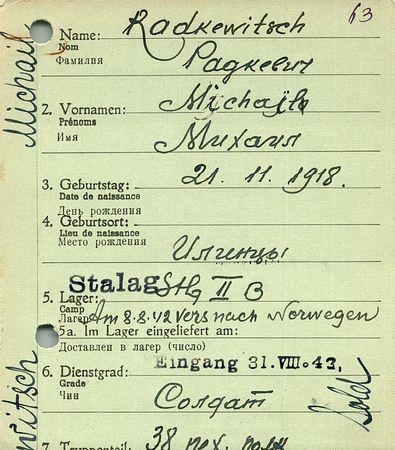 63
Michail
1. Name: Radkewitsch
Nom
Фамилия Радкевич
2. Vornamen: Michajlo
Prénoms
Имя Михаил
3. Geburtstag: 21. 11. 1918.
Date de naissance
День рождения
4. Geburtsort:
Lieu de naissance
Место рождения
Илинцы
Stalag Stlg II B
5. Lager:
Camp
Лагерь Am 8.8.42 vers nach Norwegen
5a. Im Lager eingeliefert am:
Доставлен в лагерь (число)
Eingang 31.VIII.43.
6. Dienstgrad:
Grade
Чин Солдат
Sold
witsch
7. Truppenteil: 38 пех. полк